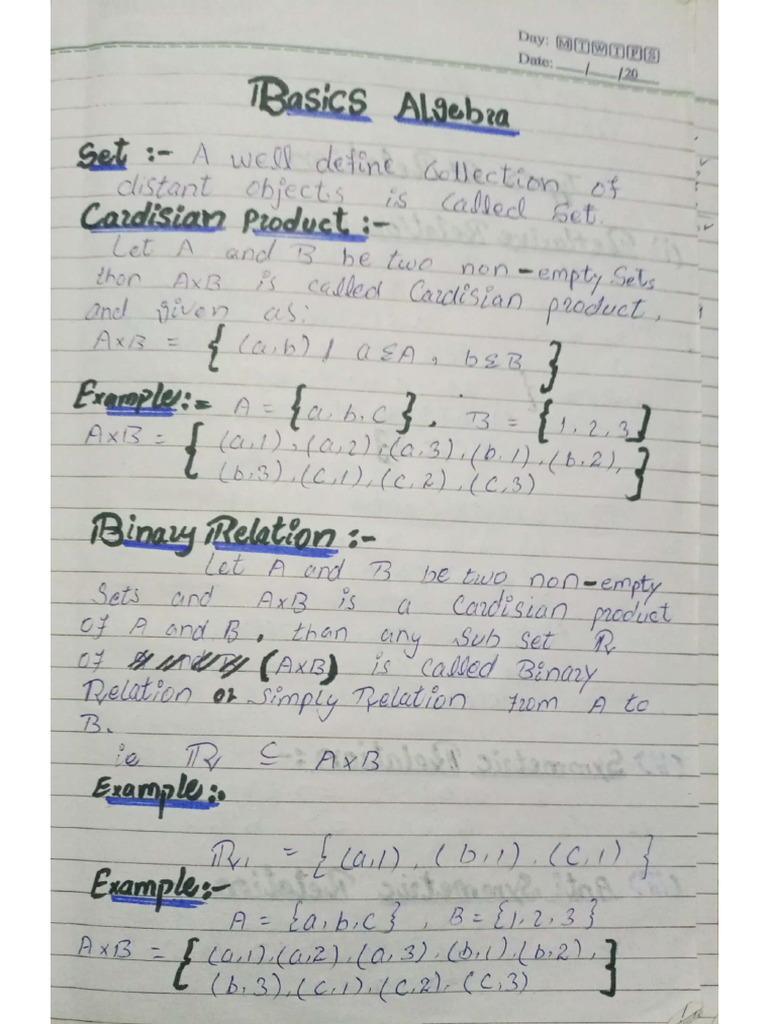 Day: M T W T F S
Date: __/__/20__
Basics Algebra
Set :- A well define collection of
distant objects is called Set.
Cardisian Product :-
Let A and B be two non-empty Sets
than A×B is called Cardisian product,
and given as:
A×B = { (a,b) / a ∈ A , b ∈ B }
Example:= A = { a, b, c } , B = { 1, 2, 3 }
A×B = { (a,1), (a,2), (a,3), (b,1), (b,2),
(b,3), (c,1), (c,2), (c,3) }
Binary Relation :-
Let A and B be two non-empty
Sets and A×B is a Cardisian product
of A and B, than any Sub set R
of (A×B) is called Binary
Relation or Simply Relation from A to
B.
ie R ⊆ A×B
Example:.
R1 = { (a,1), (b,1), (c,1) }
Example:-
A = {a, b, c} , B = {1, 2, 3}
A×B = { (a,1), (a,2), (a,3), (b,1), (b,2),
(b,3), (c,1), (c,2), (c,3) }